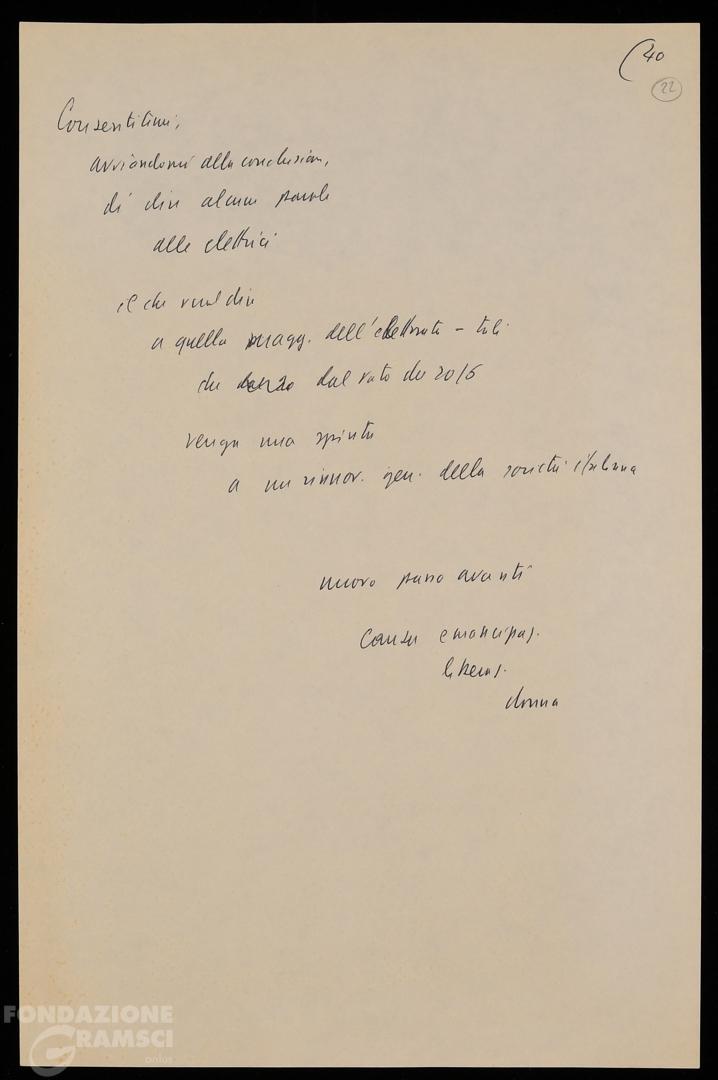 (40
22
Consentitemi,
avviandomi alla conclusione,
di dire alcune parole
alle elettrici
il che vuol dire
a quella magg. dell'elettorato –
che dal voto del 20/6
venga una spinta
a un rinnov. gen. della società italiana
nuovo passo avanti
causa emancipaz.
liberaz.
donna
FONDAZIONE
GRAMSCI
onlus